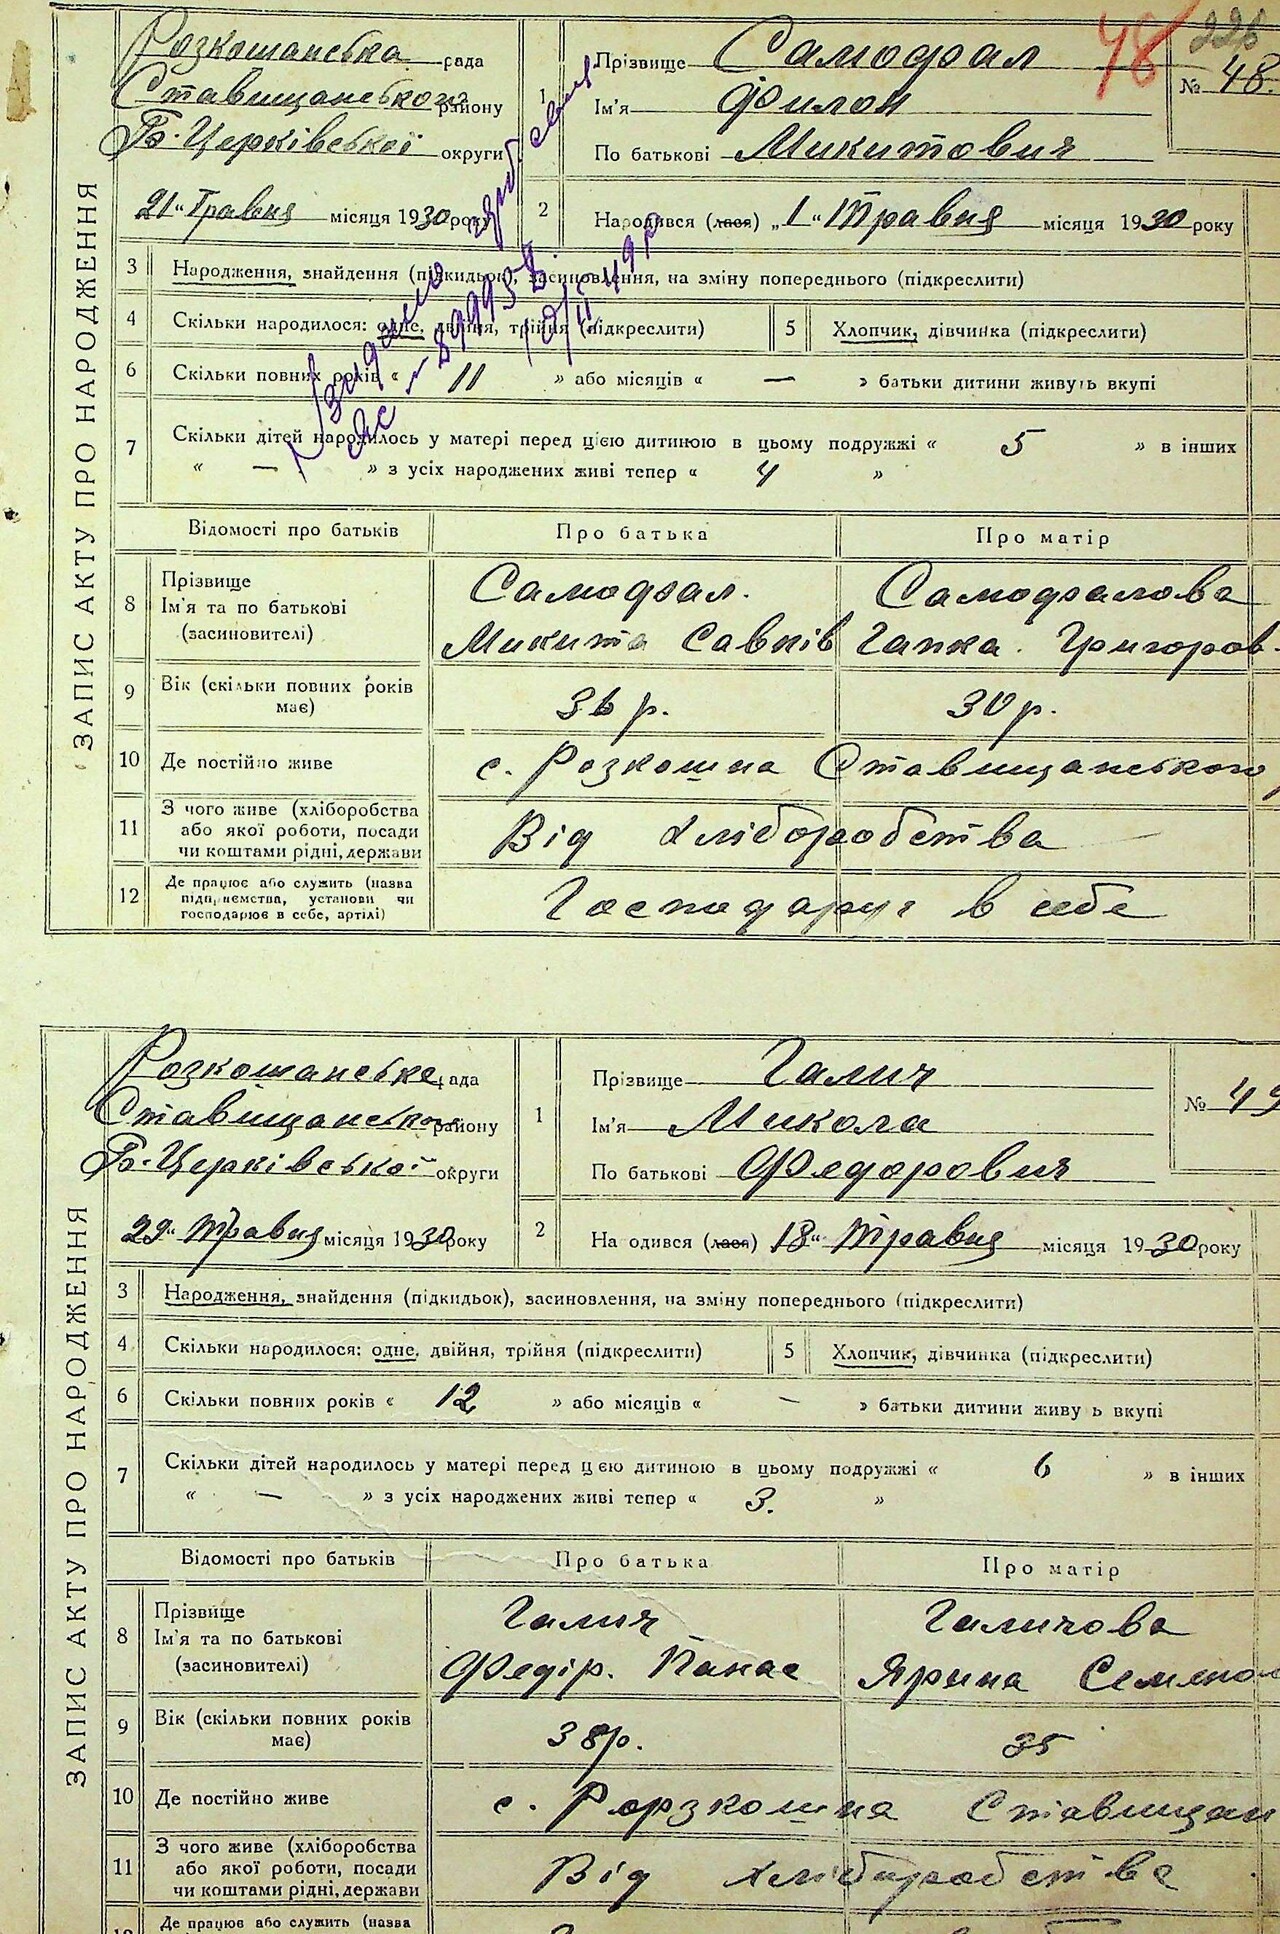 ЗАПИС АКТУ ПРО НАРОДЖЕННЯ
Розкошанська рада
Ставищанського району
Б-Церківської округи
21 " Травня місяця 1930 року
1
Прізвище Самодрал
Ім'я Филон
По батькові Микитович
48
226
№ 48.
2
Народився (лася) „ 1 " Травня місяця 1930 року
Видано
ЯС № 899958
10/II 49 р
3 Народження, знайдення (підкидьок), засиновлення, на зміну попереднього (підкреслити)
4 Скільки народилося: одне, двійня, трійня (підкреслити) 5 Хлопчик, дівчинка (підкреслити)
6 Скільки повних років « 11 » або місяців « — » батьки дитини живуть вкупі
7 Скільки дітей народилось у матері перед цією дитиною в цьому подружжі « 5 » в інших
« — » з усіх народжених живі тепер « 4 »
Відомості про батьків Про батька Про матір
8 Прізвище Самодрал. Самодралова
Ім'я та по батькові Микита Савків Гапка Григоров-
(засиновителі)
9 Вік (скільки повних років має) 36 р. 30 р.
10 Де постійно живе с. Розкошна Ставищанського
11 З чого живе (хліборобства
або якої роботи, посади Від хліборобства
чи коштами рідні, держави
12 Де працює або служить (назва
підприємства, установи чи Господарує в себе
господарює в себе, артілі)
ЗАПИС АКТУ ПРО НАРОДЖЕННЯ
Розкошанська рада
Ставищанського району
Б-Церківської округи
29 " Травня місяця 1930 року
1
Прізвище Галич
Ім'я Микола
По батькові Федорович
№ 49
2
На одився (лася) 18 " Травня місяця 1930 року
3 Народження, знайдення (підкидьок), засиновлення, на зміну попереднього (підкреслити)
4 Скільки народилося: одне, двійня, трійня (підкреслити) 5 Хлопчик, дівчинка (підкреслити)
6 Скільки повних років « 12 » або місяців « — » батьки дитини живу ь вкупі
7 Скільки дітей народилось у матері перед цією дитиною в цьому подружжі « 6 » в інших
« — » з усіх народжених живі тепер « 3. »
Відомості про батьків Про батька Про матір
8 Прізвище Галич Галичова
Ім'я та по батькові Федір. Панас Ярина Семенов
(засиновителі)
9 Вік (скільки повних років має) 38р. 35
10 Де постійно живе с. Розкошна Ставищан
11 З чого живе (хліборобства
або якої роботи, посади Від хліборобства
чи коштами рідні, держави
Де працює або служить (назва